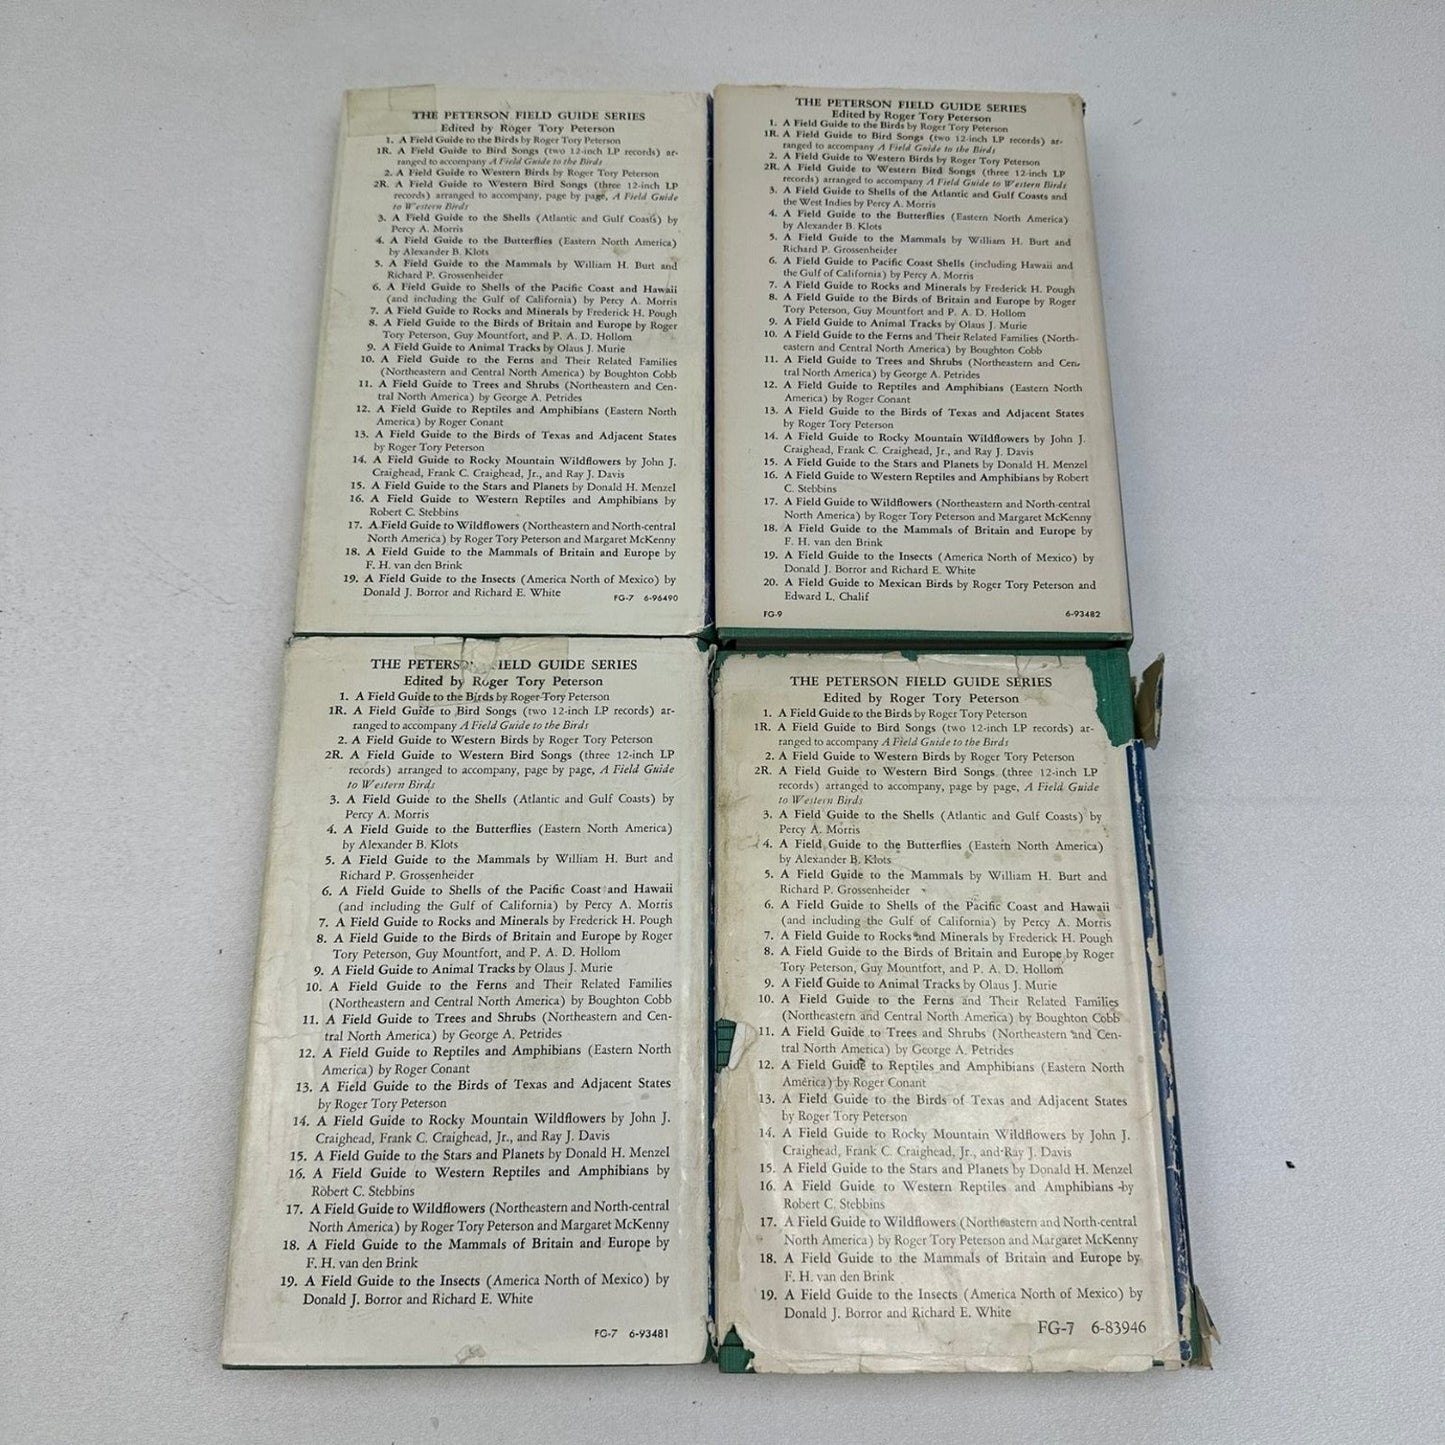 THE PETERSON FIELD GUIDE SERIES
Edited by Roger Tory Peterson
1. A Field Guide to the Birds by Roger Tory Peterson
1R. A Field Guide to Bird Songs (two 12-inch LP records) ar-
ranged to accompany A Field Guide to the Birds
2. A Field Guide to Western Birds by Roger Tory Peterson
2R. A Field Guide to Western Bird Songs (three 12-inch LP
records) arranged to accompany, page by page, A Field Guide
to Western Birds
3. A Field Guide to the Shells (Atlantic and Gulf Coasts) by
Percy A. Morris
4. A Field Guide to the Butterflies (Eastern North America)
by Alexander B. Klots
5. A Field Guide to the Mammals by William H. Burt and
Richard P. Grossenheider
6. A Field Guide to Shells of the Pacific Coast and Hawaii
(and including the Gulf of California) by Percy A. Morris
7. A Field Guide to Rocks and Minerals by Frederick H. Pough
8. A Field Guide to the Birds of Britain and Europe by Roger
Tory Peterson, Guy Mountfort, and P. A. D. Hollom
9. A Field Guide to Animal Tracks by Olaus J. Murie
10. A Field Guide to the Ferns and Their Related Families
(Northeastern and Central North America) by Boughton Cobb
11. A Field Guide to Trees and Shrubs (Northeastern and Cen-
tral North America) by George A. Petrides
12. A Field Guide to Reptiles and Amphibians (Eastern North
America) by Roger Conant
13. A Field Guide to the Birds of Texas and Adjacent States
by Roger Tory Peterson
14. A Field Guide to Rocky Mountain Wildflowers by John J.
Craighead, Frank C. Craighead, Jr., and Ray J. Davis
15. A Field Guide to the Stars and Planets by Donald H. Menzel
16. A Field Guide to Western Reptiles and Amphibians by
Robert C. Stebbins
17. A Field Guide to Wildflowers (Northeastern and North-central
North America) by Roger Tory Peterson and Margaret McKenny
18. A Field Guide to the Mammals of Britain and Europe by
F. H. van den Brink
19. A Field Guide to the Insects (America North of Mexico) by
Donald J. Borror and Richard E. White
FG-7 6-96490
THE PETERSON FIELD GUIDE SERIES
Edited by Roger Tory Peterson
1. A Field Guide to the Birds by Roger Tory Peterson
1R. A Field Guide to Bird Songs (two 12-inch LP records) ar-
ranged to accompany A Field Guide to the Birds
2. A Field Guide to Western Birds by Roger Tory Peterson
2R. A Field Guide to Western Bird Songs (three 12-inch LP
records) arranged to accompany A Field Guide to Western Birds
3. A Field Guide to Shells of the Atlantic and Gulf Coasts and
the West Indies by Percy A. Morris
4. A Field Guide to the Butterflies (Eastern North America)
by Alexander B. Klots
5. A Field Guide to the Mammals by William H. Burt and
Richard P. Grossenheider
6. A Field Guide to Pacific Coast Shells (including Hawaii and
the Gulf of California) by Percy A. Morris
7. A Field Guide to Rocks and Minerals by Frederick H. Pough
8. A Field Guide to the Birds of Britain and Europe by Roger
Tory Peterson, Guy Mountfort and P. A. D. Hollom
9. A Field Guide to Animal Tracks by Olaus J. Murie
10. A Field Guide to the Ferns and Their Related Families (North-
eastern and Central North America) by Boughton Cobb
11. A Field Guide to Trees and Shrubs (Northeastern and Cen-
tral North America) by George A. Petrides
12. A Field Guide to Reptiles and Amphibians (Eastern North
America) by Roger Conant
13. A Field Guide to the Birds of Texas and Adjacent States
by Roger Tory Peterson
14. A Field Guide to Rocky Mountain Wildflowers by John J.
Craighead, Frank C. Craighead, Jr., and Ray J. Davis
15. A Field Guide to the Stars and Planets by Donald H. Menzel
16. A Field Guide to Western Reptiles and Amphibians by Robert
C. Stebbins
17. A Field Guide to Wildflowers (Northeastern and North-central
North America) by Roger Tory Peterson and Margaret McKenny
18. A Field Guide to the Mammals of Britain and Europe by
F. H. van den Brink
19. A Field Guide to the Insects (America North of Mexico) by
Donald J. Borror and Richard E. White
20. A Field Guide to Mexican Birds by Roger Tory Peterson and
Edward L. Chalif
FG-9 6-93482
THE PETERS FIELD GUIDE SERIES
Edited by Roger Tory Peterson
1. A Field Guide to the Birds by Roger Tory Peterson
1R. A Field Guide to Bird Songs (two 12-inch LP records) ar-
ranged to accompany A Field Guide to the Birds
2. A Field Guide to Western Birds by Roger Tory Peterson
2R. A Field Guide to Western Bird Songs (three 12-inch LP
records) arranged to accompany, page by page, A Field Guide
to Western Birds
3. A Field Guide to the Shells (Atlantic and Gulf Coasts) by
Percy A. Morris
4. A Field Guide to the Butterflies (Eastern North America)
by Alexander B. Klots
5. A Field Guide to the Mammals by William H. Burt and
Richard P. Grossenheider
6. A Field Guide to Shells of the Pacific Coast and Hawaii
(and including the Gulf of California) by Percy A. Morris
7. A Field Guide to Rocks and Minerals by Frederick H. Pough
8. A Field Guide to the Birds of Britain and Europe by Roger
Tory Peterson, Guy Mountfort, and P. A. D. Hollom
9. A Field Guide to Animal Tracks by Olaus J. Murie
10. A Field Guide to the Ferns and Their Related Families
(Northeastern and Central North America) by Boughton Cobb
11. A Field Guide to Trees and Shrubs (Northeastern and Cen-
tral North America) by George A. Petrides
12. A Field Guide to Reptiles and Amphibians (Eastern North
America) by Roger Conant
13. A Field Guide to the Birds of Texas and Adjacent States
by Roger Tory Peterson
14. A Field Guide to Rocky Mountain Wildflowers by John J.
Craighead, Frank C. Craighead, Jr., and Ray J. Davis
15. A Field Guide to the Stars and Planets by Donald H. Menzel
16. A Field Guide to Western Reptiles and Amphibians by
Robert C. Stebbins
17. A Field Guide to Wildflowers (Northeastern and North-central
North America) by Roger Tory Peterson and Margaret McKenny
18. A Field Guide to the Mammals of Britain and Europe by
F. H. van den Brink
19. A Field Guide to the Insects (America North of Mexico) by
Donald J. Borror and Richard E. White
FG-7 6-93481
THE PETERSON FIELD GUIDE SERIES
Edited by Roger Tory Peterson
1. A Field Guide to the Birds by Roger Tory Peterson
1R. A Field Guide to Bird Songs (two 12-inch LP records) ar-
ranged to accompany A Field Guide to the Birds
2. A Field Guide to Western Birds by Roger Tory Peterson
2R. A Field Guide to Western Bird Songs (three 12-inch LP
records) arranged to accompany, page by page, A Field Guide
to Western Birds
3. A Field Guide to the Shells (Atlantic and Gulf Coasts) by
Percy A. Morris
4. A Field Guide to the Butterflies (Eastern North America)
by Alexander B. Klots
5. A Field Guide to the Mammals by William H. Burt and
Richard P. Grossenheider
6. A Field Guide to Shells of the Pacific Coast and Hawaii
(and including the Gulf of California) by Percy A. Morris
7. A Field Guide to Rocks and Minerals by Frederick H. Pough
8. A Field Guide to the Birds of Britain and Europe by Roger
Tory Peterson, Guy Mountfort, and P. A. D. Hollom
9. A Field Guide to Animal Tracks by Olaus J. Murie
10. A Field Guide to the Ferns and Their Related Families
(Northeastern and Central North America) by Boughton Cobb
11. A Field Guide to Trees and Shrubs (Northeastern and Cen-
tral North America) by George A. Petrides
12. A Field Guide to Reptiles and Amphibians (Eastern North
America) by Roger Conant
13. A Field Guide to the Birds of Texas and Adjacent States
by Roger Tory Peterson
14. A Field Guide to Rocky Mountain Wildflowers by John J.
Craighead, Frank C. Craighead, Jr., and Ray J. Davis
15. A Field Guide to the Stars and Planets by Donald H. Menzel
16. A Field Guide to Western Reptiles and Amphibians by
Robert C. Stebbins
17. A Field Guide to Wildflowers (Northeastern and North-central
North America) by Roger Tory Peterson and Margaret McKenny
18. A Field Guide to the Mammals of Britain and Europe by
F. H. van den Brink
19. A Field Guide to the Insects (America North of Mexico) by
Donald J. Borror and Richard E. White
FG-7 6-83946